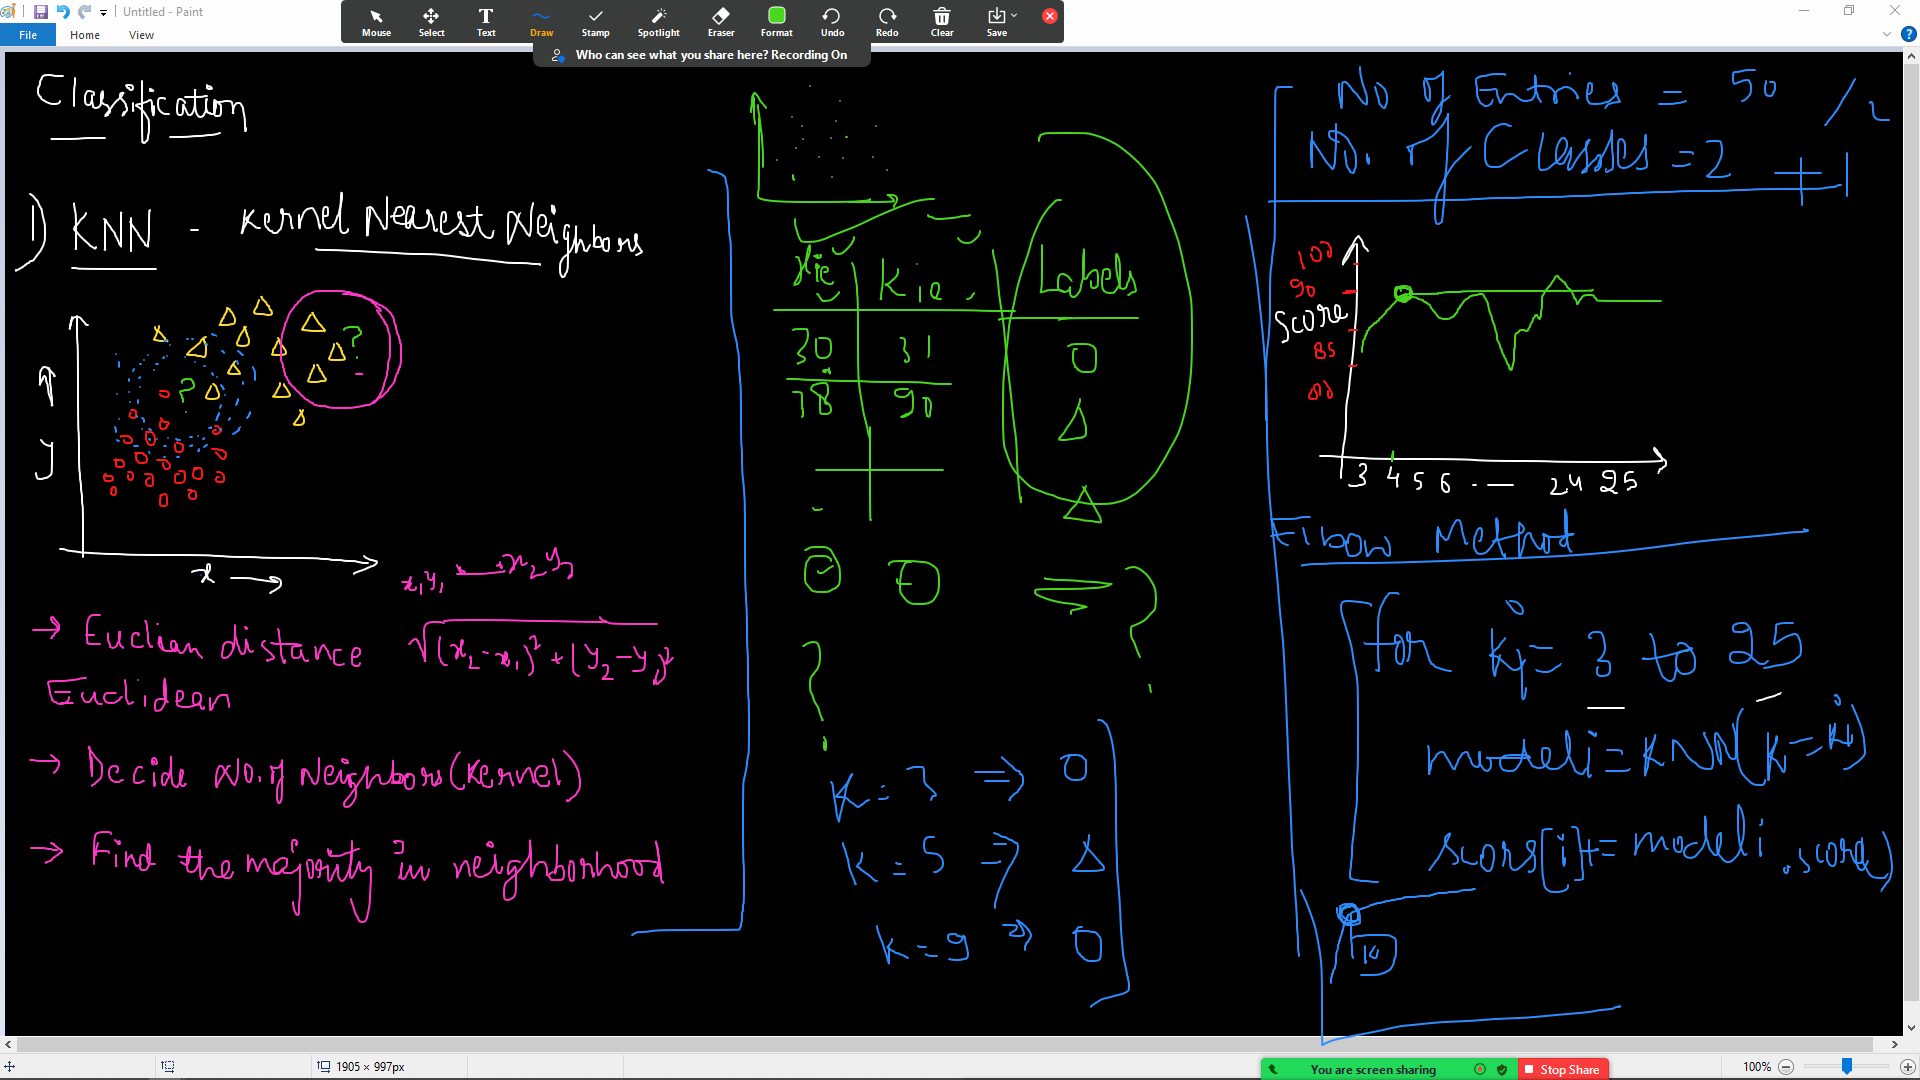 Untitled - Paint
File Home View
Mouse Select Text Draw Stamp Spotlight Eraser Format Undo Redo Clear Save
Who can see what you share here? Recording On
Classification
1) KNN - Kernel Nearest Neighbors
?
?
y
x
x1y1 x2y2
→ Euclian distance √(x2-x1)²+(y2-y1)²
Euclidean
→ Decide No. of Neighbors (Kernel)
→ Find the majority in neighborhood
Labels
30 31 0
78 90 Δ
Δ
= ?
?
K = 3 ⇒ 0
K = 5 ⇒ Δ
K = 9 ⇒ 0
No of Entries = 50 /2
No. of Classes = 2 +1
100
90
Score
85
80
3 4 5 6 24 25
Elbow Method
for i = 3 to 25
modeli = KNN(K=i)
scors[i]+= modeli.score)
10
1905 × 997px
You are screen sharing
Stop Share
100%